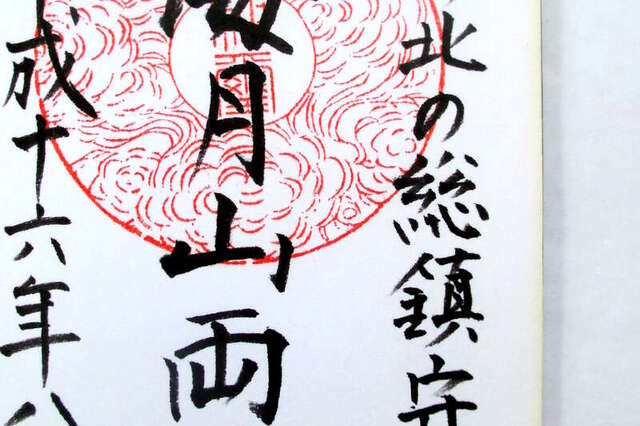 北の総鎮守
月山両
成十六年八